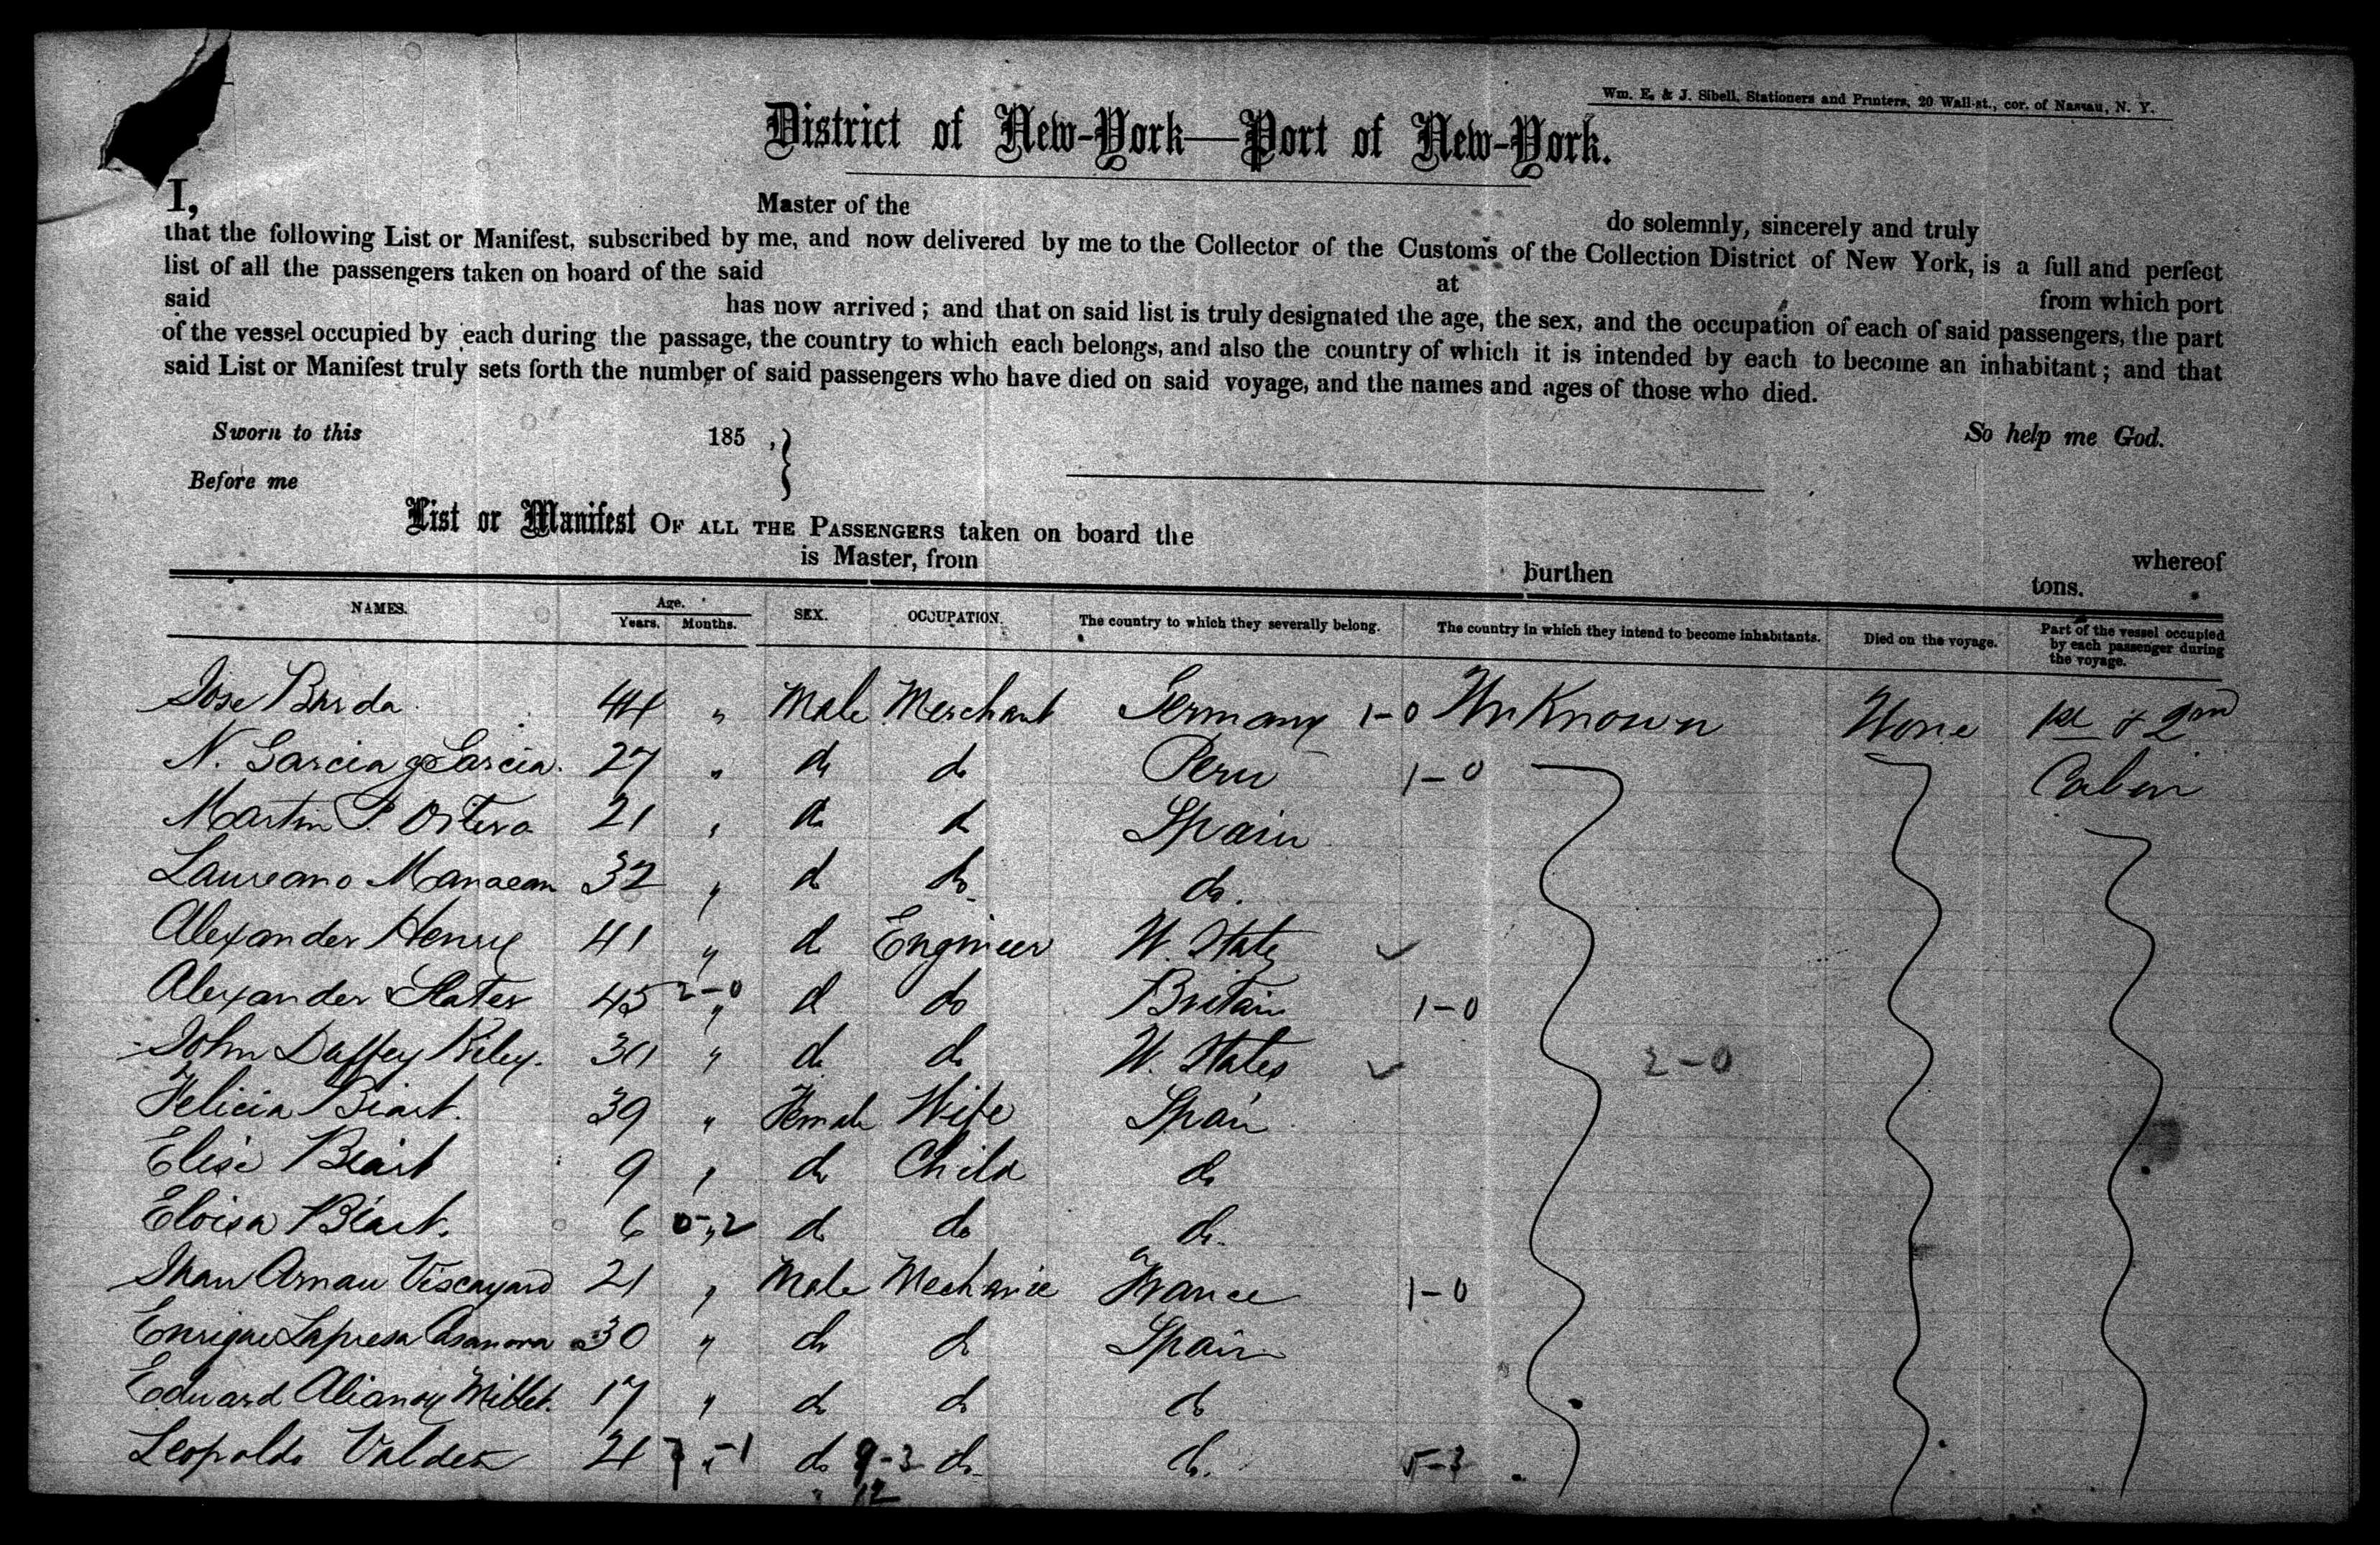 Wm. E. & J. Sibell, Stationers and Printers, 20 Wall-st., cor. of Nassau, N. Y.
District of New-York—Port of New-York.
I, Master of the do solemnly, sincerely and truly
that the following List or Manifest, subscribed by me, and now delivered by me to the Collector of the Customs of the Collection District of New York, is a full and perfect
list of all the passengers taken on board of the said at from which port
said has now arrived; and that on said list is truly designated the age, the sex, and the occupation of each of said passengers, the part
of the vessel occupied by each during the passage, the country to which each belongs, and also the country of which it is intended by each to become an inhabitant; and that
said List or Manifest truly sets forth the number of said passengers who have died on said voyage, and the names and ages of those who died.
Sworn to this 185 , So help me God.
Before me
List or Manifest OF ALL THE PASSENGERS taken on board the whereof
is Master, from burthen tons.
NAMES. Age. Years. Months. SEX. OCCUPATION. The country to which they severally belong. The country in which they intend to become inhabitants. Died on the voyage. Part of the vessel occupied by each passenger during the voyage.
Jose Barda 44 " Male Merchant Germany 1-0 UnKnown None 1st & 2nd
N. Garcia y Garcia. 27 " do do Peru 1-0 Cabin
Martin P. 21 " do do Spain
Laureano 32 " do do do.
Alexander Henry 41 " do Engineer U. States
Alexander Slater 45 2-0 " do do Britain 1-0
John Daffey Riley. 30 " do do U. States 2-0
Felicia Biart. 39 " Female Wife Spain
Elisa Biart 9 " do Child do
Eloisa Biart. 6 0-2 " do do do.
Juan Arnau 21 " Male Mechanic France 1-0
Enrique Lapresa Casanova 30 " do do Spain
Eduard Millet. 17 " do do do
Leopoldo Valdes 24 7-1 " do 9-3 do do. 5-3
12